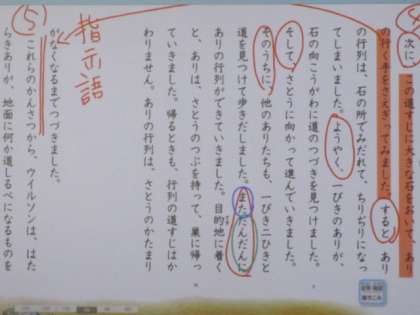 次に、この道すじに大きな石をおいて、あり
の行く手をさえぎってみました。すると、あり
の行列は、石の所でみだれて、ちりぢりになっ
てしまいました。ようやく、一ぴきのありが、
石の向こうがわに道のつづきを見つけました。
そして、さとうに向かって進んでいきました。
そのうちに、他のありたちも、一ぴき二ひきと
道を見つけて歩きだしました。まただんだんに
ありの行列ができていきました。目的地に着く
と、ありは、さとうのつぶを持って、巣に帰っ
ていきました。帰るときも、行列の道すじはか
わりません。ありの行列は、さとうのかたまり
がなくなるまでつづきました。
指示語
⑤
これらのかんさつから、ウイルソンは、はた
らきありが、地面に何か道しるべになるものを